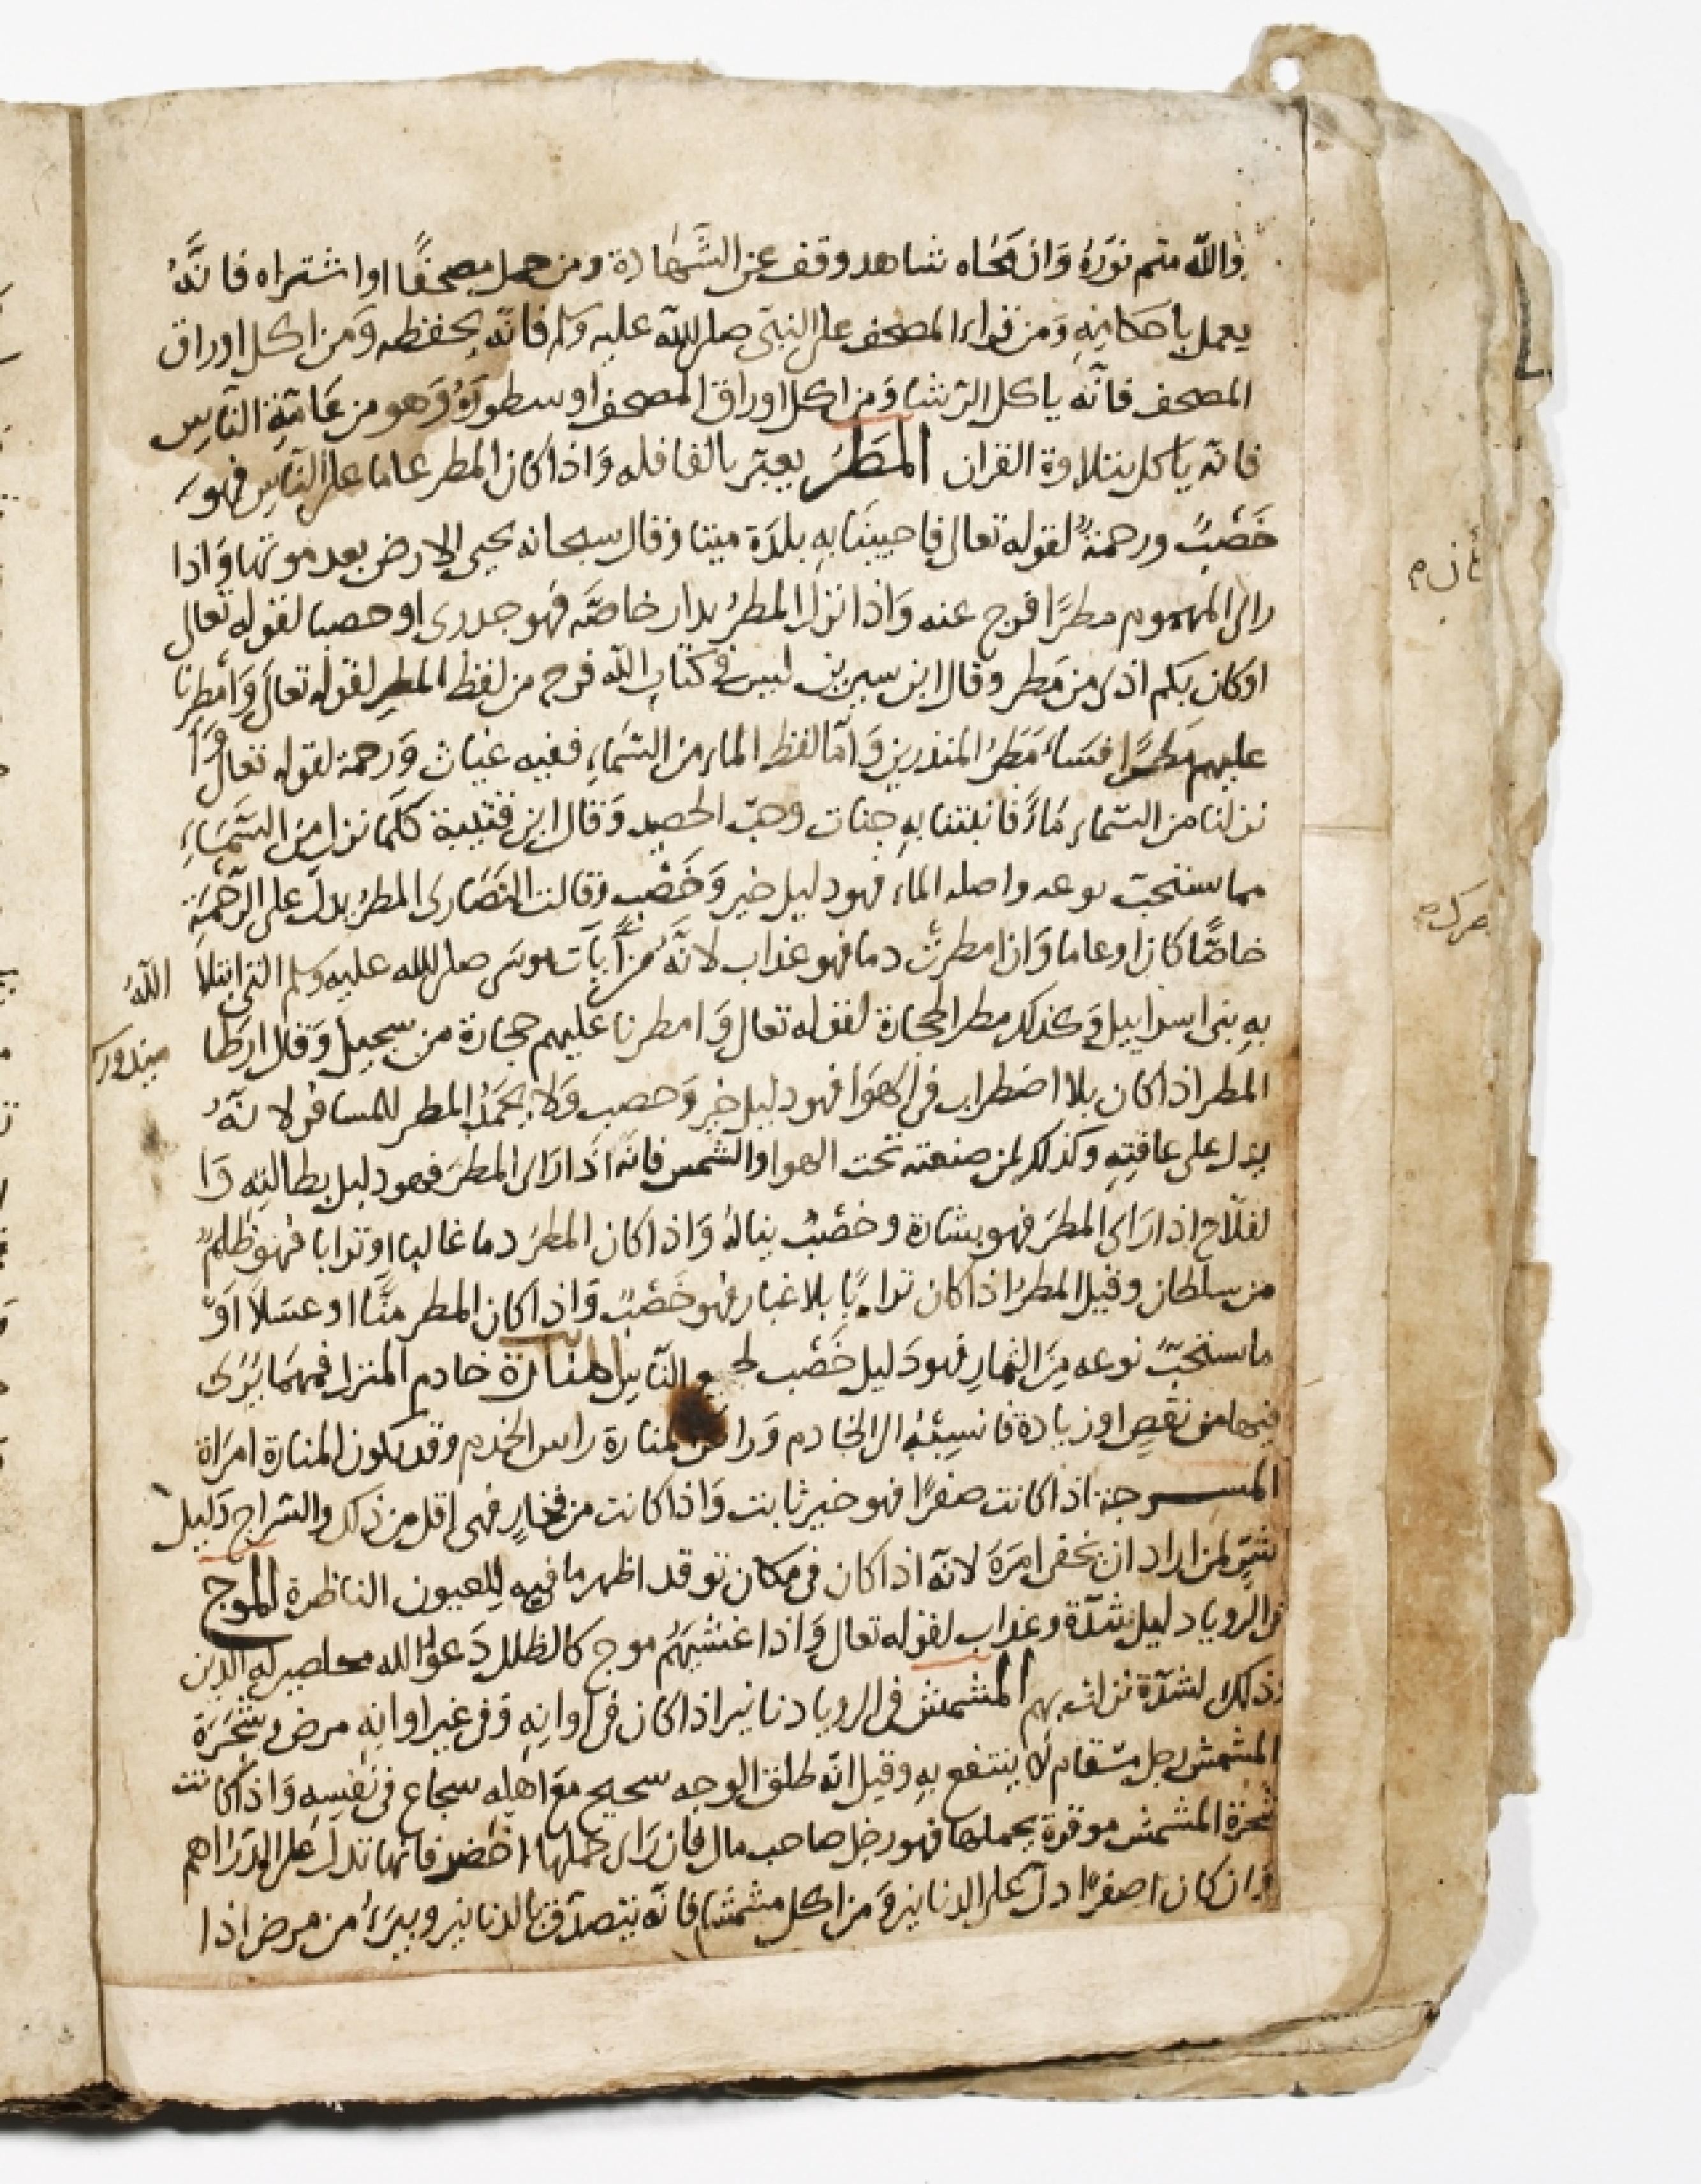 والله متم نوره وان محاه شاهد وقف عن الشهادة ومن حمل مصحفًا او اشتراه فانَّهُ
يعمل باحكامِهِ وَمن قراء المصحف على النبيّ صلى الله عليه وسلم فانّه يحفظه وَمن اكل اوراق
المصحف فانَّه ياكل الرشا وَمن اكل اوراق المصحف او سطورَهُ وَهو من عَامّةِ النَّاسِ
فانّه ياكل بتلاوة القران المَطَرُ يعبّر بالقافله وَاذا كان المطر عاما على النَّاسِ فهوَ
خَصْبٌ ورحمةٌ لقوله تعالى فاحيينَا بهِ بلدَة ميتا وَقال سبحانه يحيى الارض بعد موتها وَاذا
راى المهموم مطرًا فرج عنه وَاذا نزل المطرُ بدار خاصَّه فهو جدرى او حصبا لقوله تعالى
او كان بكم اذى من مَطر وقال ابن سيرين ليس فى كتاب الله فرج من لفظ المطر لقوله تعالى وَأمطرنا
عليهم مَطرًا فسَاءَ مَطَرُ المنذرين وَأمّا لفظ الماء من السَّمَاءِ ففيه غياث وَرحمة لقوله تعالى وَا
نزلنا من السّماء مَاءً فانبتنا بهِ جنات وحبّ الحصيد وَقال ابن قتيبة كلّما نزل من السَّمَاءِ
مما يستحبّ نوعه واصله الماء فهو دليل خير وَخَصْب وَقالت النصَارى المطرُ يدلّ على الرَّحْمَةِ
خاصًّا كان او عاما وَان امطرتْ دما فهو عذاب لانَّه من آيَات موسَى صلى الله عليه وسلم التى ابتلاَ اللهُ
بهِ بنى اسراييل وَكذلك مطر الحجارة لقوله تعالى وَامطرنا عليهم حجارة من سجيل وَقال ارطا ميندورس
المطر اذا كان بلا اضطراب فى الهوَا فهو دليل خير وَخصب وَلا يحمَدُ المطر للمسافر لانَّهُ
يدل على عاقتِهِ وكذلك لمن صنعته تحت الهوا والشمس فانّه اذا رَاى المطرَ فهو دليل بطالتِهِ وَا
لفلّاح اذا رَاى المطرَ فهو بشارة وخصْبٌ ينالهُ وَاذا كان المطرُ دما غالبا او ترابا فهو ظلمٌ
من سلطان وقيل المطرُ اذا كان ترابًا بلا غبار فهو خَصْبٌ وَاذا كان المطر منًّا او عسَلاً اوْ
ما يستحبّ نوعه مِنَ الثمارِ فهو دَليل خَصْب لجميع النّاسِ المنارة خادم المنزل فمهمَا يُرَى
فيها من نقصٍ او زيادة فانسِبْهُ الى الخادم وَراس المنارة راس الخدم وقد تكون المنارة امرَاة
المسرجة اذا كانت صفرًا فهو خير ثابت وَاذا كانت من فخارٍ فهى اقل من ذلك والسّراج دَليل
شرّ لمن اراد ان يخفى امرَهُ لانَّه اذا كان فى مكان توقد اظهر ما فيه لِلعيون الناظرة الموج
فى الرويا دليل شدّة وعذاب لقوله تعالى وَاذا غشيَهُم موج كالظلل دَعوا الله مخلصين له الدين
وذلك لشدّة نزلت بهم المشمش فى الرويا دنانير اذا كان فى اوانِهِ وَفى غير اوانِهِ مرض وشجَرَة
المشمش رجل مسْقام لا ينتفع بهِ وقيل انّه طلق الوجه سحيح مع اهلِه سجاع فى نفسِهِ وَاذا كانت
شجرة المشمش موقرة بحملها فهو رجل صاحب مال فان رَاى حملها اخضر فانّها تدلّ على الدَرَاهم
وَان كان اصفرًا دلّ على الدنانير وَمن اكل مشمشا فانّه يتصدّق بالدنانير ويبرَءُ من مرض اذا